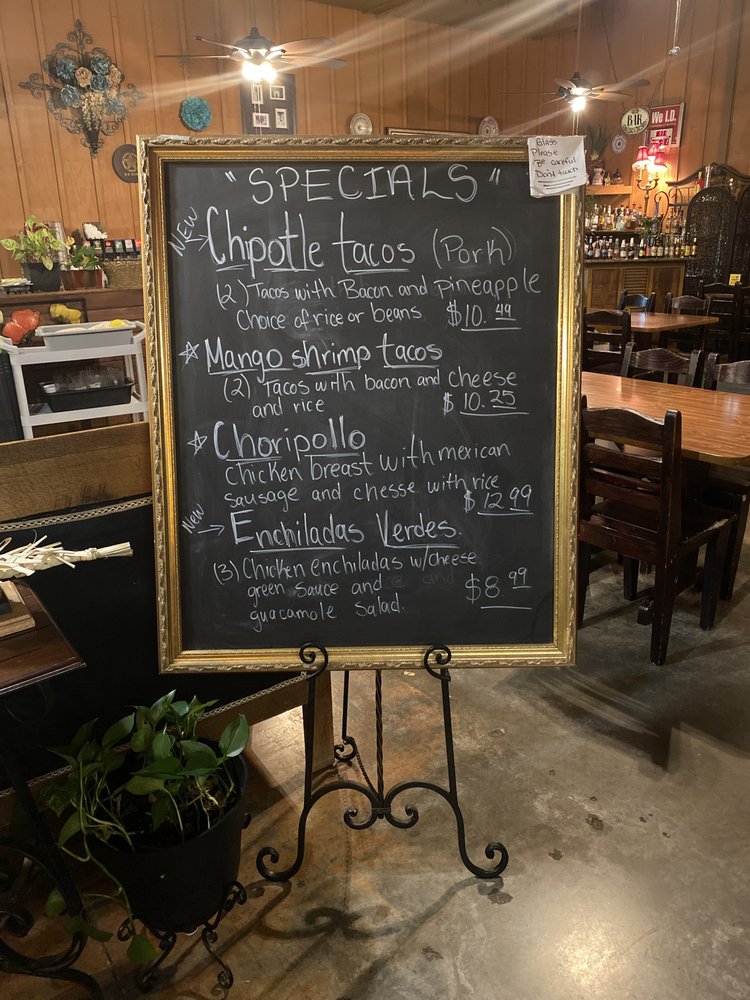 "SPECIALS"
Glass
Please
Be careful
Don't touch
NEW
Chipotle tacos (Pork)
(2) Tacos with Bacon and pineapple
Choice of rice or beans $10.49
Mango shrimp tacos
(2) Tacos with bacon and cheese
and rice $10.25
Choripollo
Chicken breast with mexican
sausage and chesse with rice
$12.99
New
Enchiladas Verdes.
(3) Chicken enchiladas w/cheese
green sauce and
guacamole salad. $8.99
BAR
We I.D.